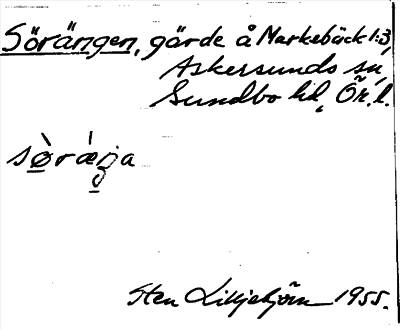 Sörängen, gärde å Markebäck 1:3,
Askersunds sn,
Sundbo hd, Ör. l.
sø̀rǽŋa
Sten Liljebjörn 1955.